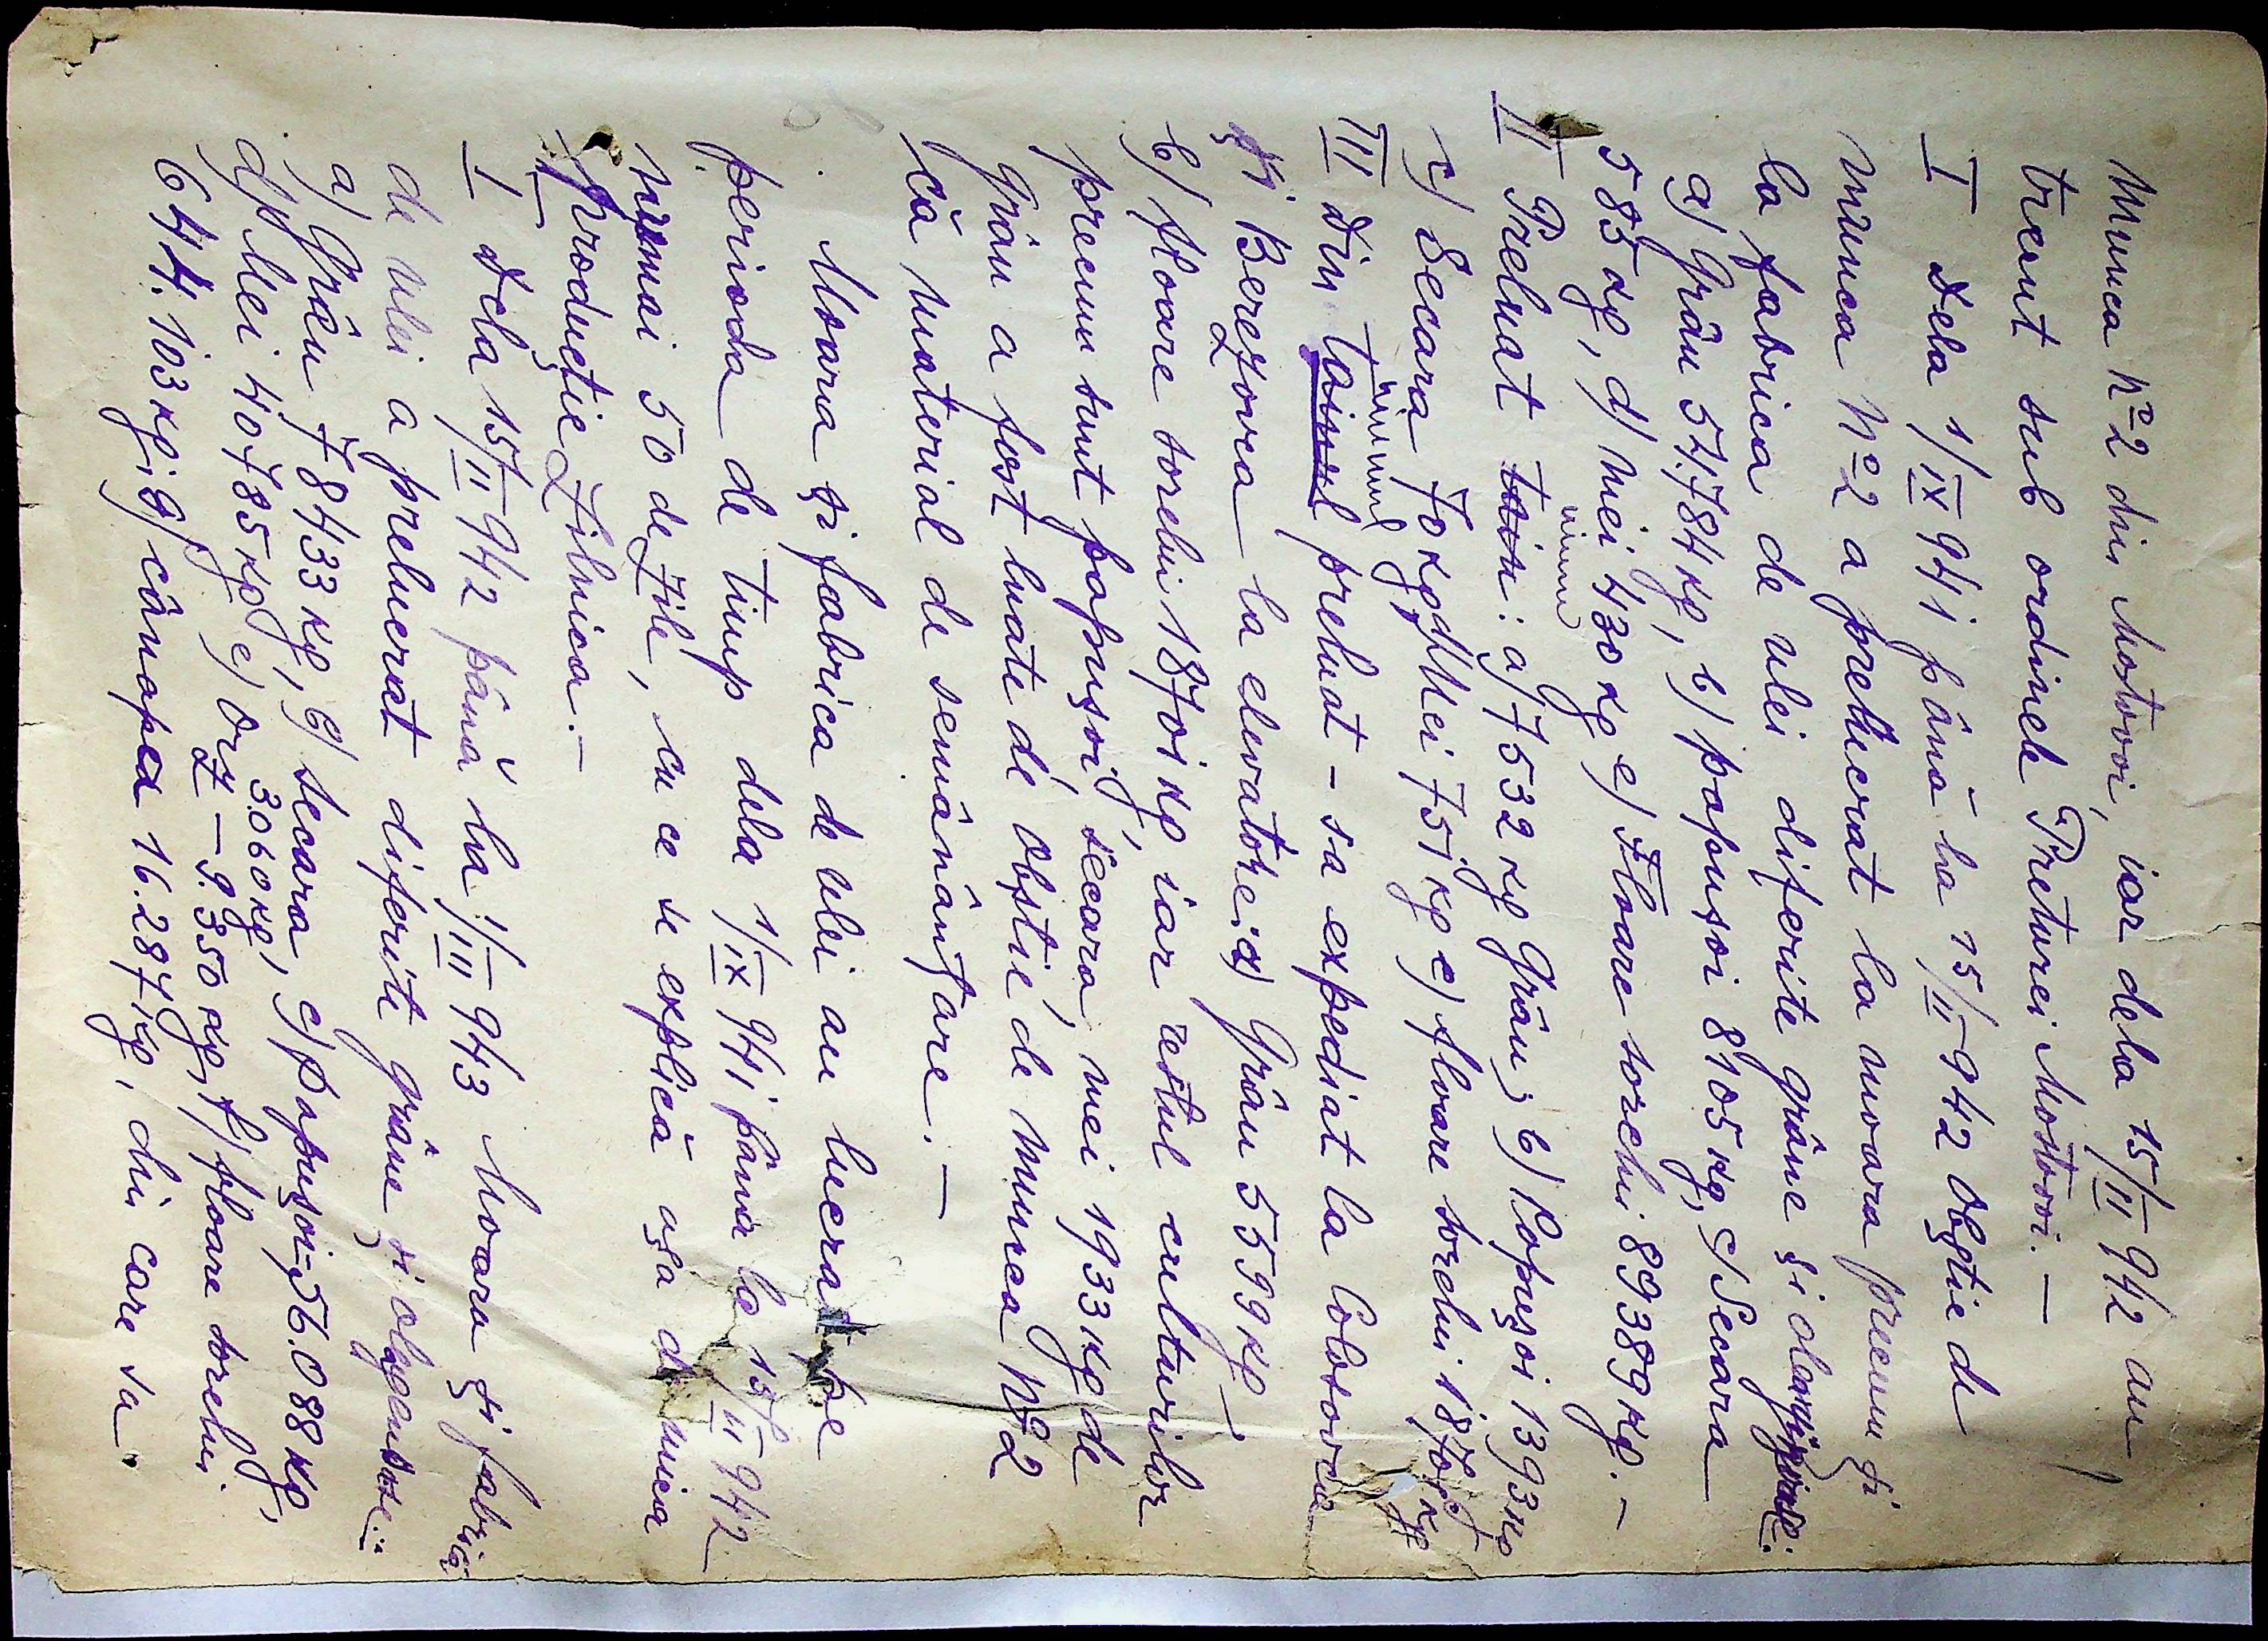 Munca No 2 din Mostovoi, iar dela 15/II 942 au
trecut sub ordinele Preturei Mostovoi. —
I Dela 1/IX 941 până la 15/II 942 Obștie de
munca No 2 a prelucrat la moara precum și
la fabrica de ulei diferite grâne și oleaginoase:
a) Grâu 57.784 kg, b) păpușoi 8105 kg, c) Secara
585 kg, d) Mei 430 kg e) Floare sorelui 89389 kg. —
II Preluat uium: a) 7532 kg Grâu; b) Popușoi 1393 kg
c) Secara 70 kg d) Mei 751 kg e) floare sorelui 18701 kg
III Din uiumul preluat – sa expediat la Colosovca
și Berezovca la elevatore: a) Grâu 5599 kg
b) floare sorelui 18701 kg iar restul culturilor
precum sunt popușoi, secara, mei 1933 kg de
Grâu a fost luate de Obștie de Munca No 2
că material de semănănțare. —
Moara și fabrica de ulei au lucrat pe
perioda de timp dela 1/IX 941 până la 15/II 942
numai 50 de zile, cu ce se explică așa de mica
producție zilnica. —
I Dela 15/II 942 până la 1/III 943 Moara și fabrica
de ulei a prelucrat diferite grâne și olegenoase:
a) Grâu 78433 kg, b) secara, 3.060 kg, c) păpușoi – 56.088 kg,
d) Mei 40785 kg e) Orz – 9.350 kg, f) floare sorelui
644.103 kg; g) cânapa 16.287 kg, din care sa